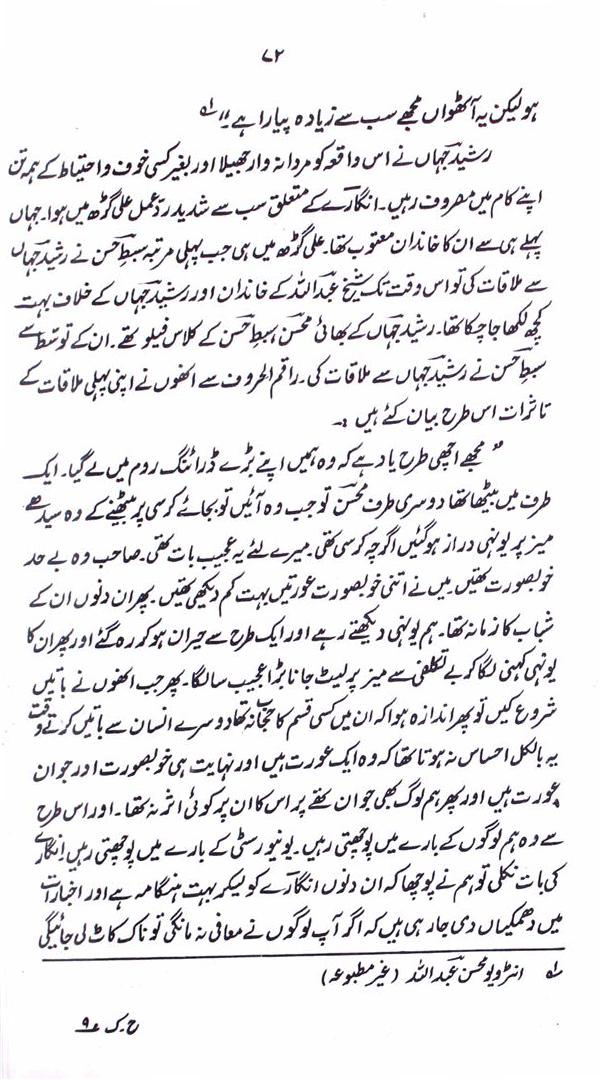 ۷۲
ہو لیکن یہ آٹھواں مجھے سب سے زیادہ پیارا ہے۔"؎۱
رشید جہاں نے اس واقعہ کو مردانہ وار جھیلا اور بغیر کسی خوف و احتیاط کے ہمہ تن
اپنے کام میں مصروف رہیں۔ انگارے کے متعلق سب سے شدید ردِ عمل علی گڑھ میں ہوا۔ جہاں
پہلے ہی سے ان کا خاندان معتوب تھا۔ علی گڑھ میں ہی جب پہلی مرتبہ سبطِ حسن نے رشید جہاں
سے ملاقات کی تو اس وقت تک شیخ عبداللہ کے خاندان اور رشید جہاں کے خلاف بہت
کچھ لکھا جا چکا تھا۔ رشید جہاں کے بھائی محسن، سبطِ حسن کے کلاس فیلو تھے۔ ان کے توسط سے
سبطِ حسن نے رشید جہاں سے ملاقات کی۔ راقم الحروف سے انھوں نے اپنی پہلی ملاقات کے
تاثرات اس طرح بیان کئے ہیں :۔
"مجھے اچھی طرح یاد ہے کہ وہ ہمیں اپنے بڑے ڈرائنگ روم میں لے گیا۔ ایک
طرف میں بیٹھا تھا دوسری طرف محسن تو جب وہ آئیں تو بجائے کرسی پر بیٹھنے کے وہ سیدھے
میز پر یونہی دراز ہو گئیں اگرچہ کرسی تھی۔ میرے لئے یہ عجیب بات تھی۔ صاحب وہ بے حد
خوبصورت تھیں۔ میں نے اتنی خوبصورت عورتیں بہت کم دیکھی تھیں۔ پھر ان دنوں ان کے
شباب کا زمانہ تھا۔ ہم یونہی دیکھتے رہے اور ایک طرح سے حیران ہو کر رہ گئے اور پھر ان کا
یونہی کہنی لگا کر بے تکلفی سے میز پر لیٹ جانا بڑا عجیب سا لگا۔ پھر جب انھوں نے باتیں
شروع کیں تو پھر اندازہ ہوا کہ ان میں کسی قسم کا حجاب نہ تھا دوسرے انسان سے باتیں کرتے وقت
یہ بالکل احساس نہ ہوتا تھا کہ وہ ایک عورت ہیں اور نہایت ہی خوبصورت اور جوان
عورت ہیں اور پھر ہم لوگ بھی جوان تھے پر اس کا ان پر کوئی اثر نہ تھا۔ اور اس طرح
سے وہ ہم لوگوں کے بارے میں پوچھتی رہیں۔ یونیورسٹی کے بارے میں پوچھتی رہیں۔ انگارے
کی بات نکلی تو ہم نے پوچھا کہ ان دنوں انگارے کو لیکر بہت ہنگامہ ہے اور اخبارات
میں دھمکیاں دی جا رہی ہیں کہ اگر آپ لوگوں نے معافی نہ مانگی تو ناک کاٹ لی جائیگی
؎۱ انٹرویو محسن عبداللہ (غیر مطبوعہ)
ح۔ک ۹؎